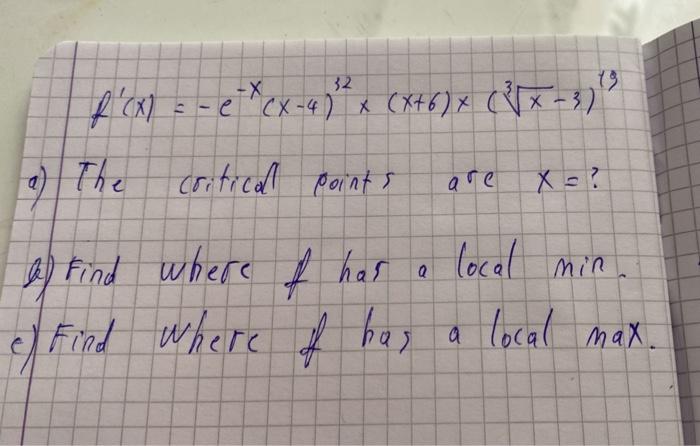 f'(x) = -e^{-x}(x-4)^{32} × (x+6) × (∛x - 3)^{19}
a) The critical points are x = ?
b) Find where f has a local min.
c) Find where f has a local max.